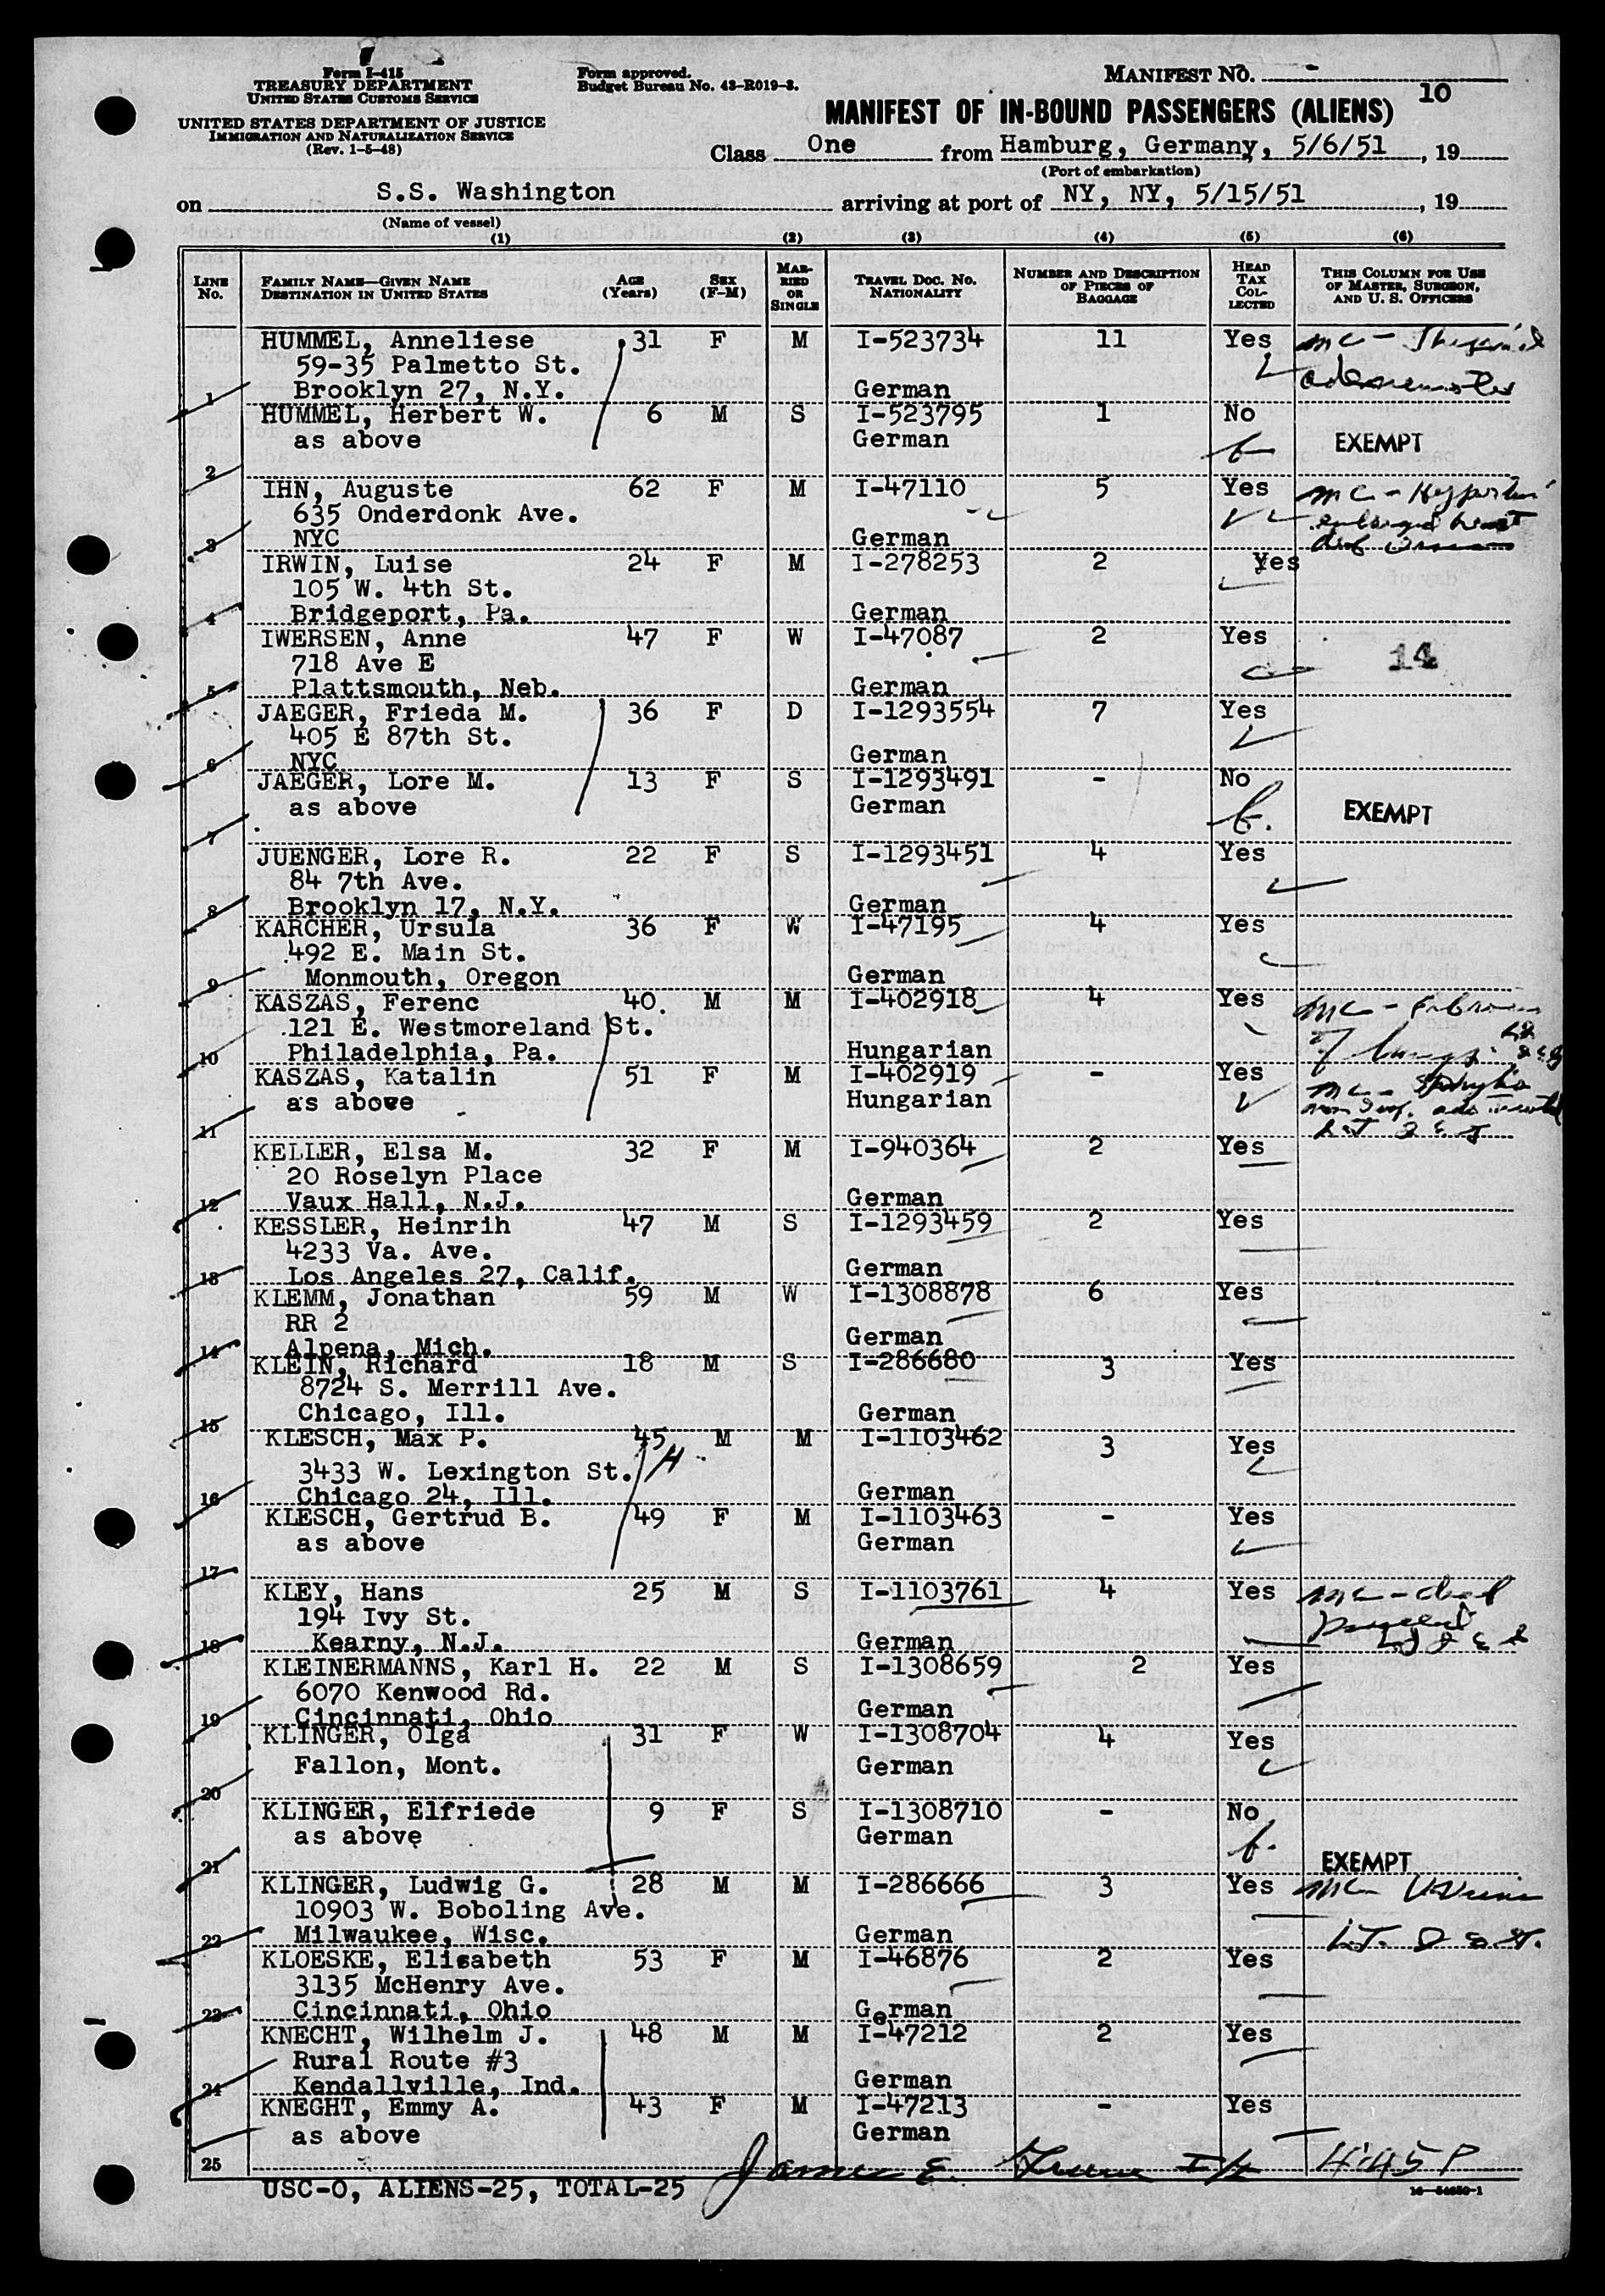 Form I-415
TREASURY DEPARTMENT
UNITED STATES CUSTOMS SERVICE
UNITED STATES DEPARTMENT OF JUSTICE
IMMIGRATION AND NATURALIZATION SERVICE
(Rev. 1-5-48)
Form approved.
Budget Bureau No. 43-R019-3.
MANIFEST NO. -
10
MANIFEST OF IN-BOUND PASSENGERS (ALIENS)
Class One from Hamburg, Germany, 5/6/51, 19
(Port of embarkation)
on S.S. Washington arriving at port of NY, NY, 5/15/51, 19
(Name of vessel)
(1) (2) (3) (4) (5) (6)
LINE No. FAMILY NAME—GIVEN NAME DESTINATION IN UNITED STATES AGE (Years) SEX (F-M) MARRIED OR SINGLE TRAVEL DOC. NO. NATIONALITY NUMBER AND DESCRIPTION OF PIECES OF BAGGAGE HEAD TAX COLLECTED THIS COLUMN FOR USE OF MASTER, SURGEON, AND U. S. OFFICERS
HUMMEL, Anneliese 31 F M I-523734 11 Yes mc -
59-35 Palmetto St.
1 Brooklyn 27, N.Y. German
HUMMEL, Herbert W. 6 M S I-523795 1 No
as above German EXEMPT
2
IHN, Auguste 62 F M I-47110 5 Yes mc -
635 Onderdonk Ave. enlarged heart
3 NYC German
IRWIN, Luise 24 F M I-278253 2 Yes
105 W. 4th St.
4 Bridgeport, Pa. German
IWERSEN, Anne 47 F W I-47087 2 Yes
718 Ave E 14
5 Plattsmouth, Neb. German
JAEGER, Frieda M. 36 F D I-1293554 7 Yes
405 E 87th St.
6 NYC German
JAEGER, Lore M. 13 F S I-1293491 - No
as above German EXEMPT
7
JUENGER, Lore R. 22 F S I-1293451 4 Yes
84 7th Ave.
8 Brooklyn 17, N.Y. German
KARCHER, Ursula 36 F W I-47195 4 Yes
492 E. Main St.
9 Monmouth, Oregon German
KASZAS, Ferenc 40 M M I-402918 4 Yes mc -
121 E. Westmoreland St. of lungs
10 Philadelphia, Pa. Hungarian
KASZAS, Katalin 51 F M I-402919 - Yes mc -
as above Hungarian
11
KELLER, Elsa M. 32 F M I-940364 2 Yes
20 Roselyn Place
12 Vaux Hall, N.J. German
KESSLER, Heinrih 47 M S I-1293459 2 Yes
4233 Va. Ave.
13 Los Angeles 27, Calif. German
KLEMM, Jonathan 59 M W I-1308878 6 Yes
RR 2
14 Alpena, Mich. German
KLEIN, Richard 18 M S I-286680 3 Yes
8724 S. Merrill Ave.
15 Chicago, Ill. German
KLESCH, Max P. 45 M M I-1103462 3 Yes
3433 W. Lexington St. H
16 Chicago 24, Ill. German
KLESCH, Gertrud B. 49 F M I-1103463 - Yes
as above German
17
KLEY, Hans 25 M S I-1103761 4 Yes mc -
194 Ivy St.
18 Kearny, N.J. German
KLEINERMANNS, Karl H. 22 M S I-1308659 2 Yes
6070 Kenwood Rd.
19 Cincinnati, Ohio German
KLINGER, Olga 31 F W I-1308704 4 Yes
Fallon, Mont. German
20
KLINGER, Elfriede 9 F S I-1308710 - No
as above German
21 EXEMPT
KLINGER, Ludwig G. 28 M M I-286666 3 Yes mc
10903 W. Boboling Ave.
22 Milwaukee, Wisc. German
KLOESKE, Elisabeth 53 F M I-46876 2 Yes
3135 McHenry Ave.
23 Cincinnati, Ohio German
KNECHT, Wilhelm J. 48 M M I-47212 2 Yes
Rural Route #3
24 Kendallville, Ind. German
KNEGHT, Emmy A. 43 F M I-47213 - Yes
as above German
25 James E. 4:45 P
USC-0, ALIENS-25, TOTAL-25
16—54650-1